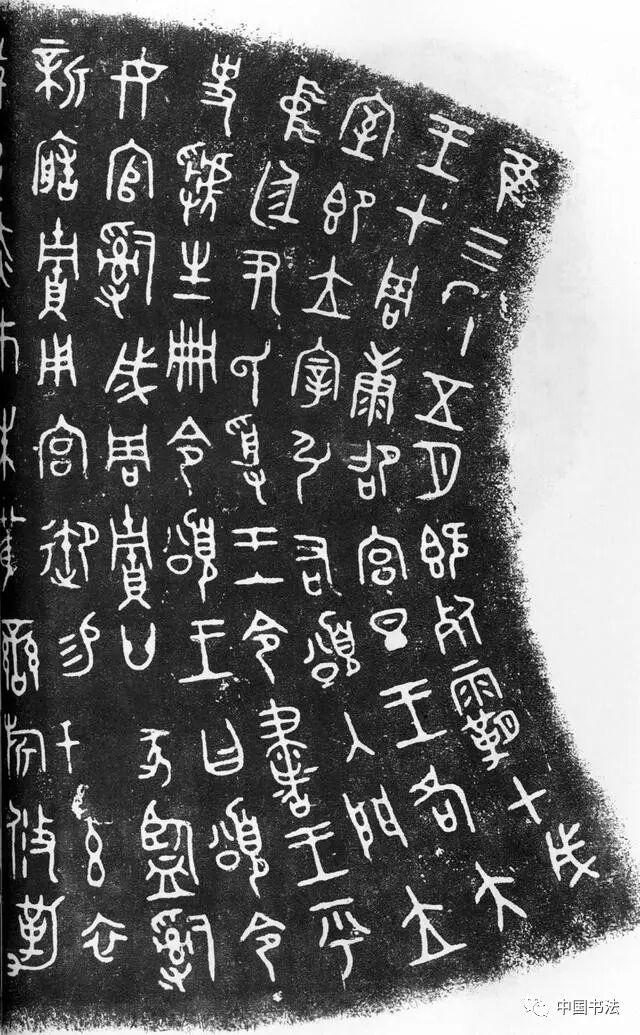 隹三年五月既死霸甲戌
王才周康卲宮旦王各大
室即立宰引右頌入門立
中廷尹氏受王令書王乎
史虢生冊令頌王曰頌令
女官𤔲成周貯廿家監𤔲
新造貯用宮御易女玄衣
赤巿朱黃䜌旂攸勒
中国书法